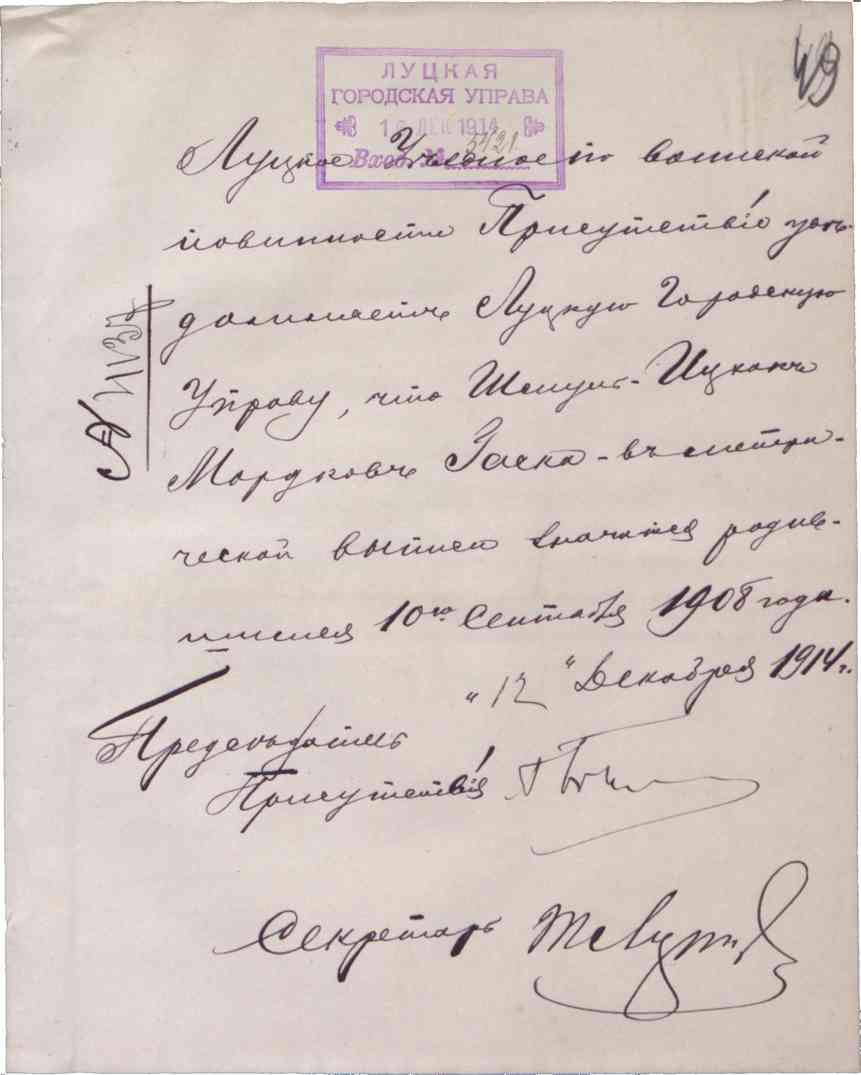 49
ЛУЦКАЯ
ГОРОДСКАЯ УПРАВА
16 ДЕК 1914
Вход. № 5421
Луцкое Уездное по воинской
повинности Присутствіе увѣ-
домляетъ Луцкую Городскую
Управу, что Шмуль-Ицко
Мордковъ Заска - въ метри-
ческой выписи значится родив-
шимся 10го Сентября 1908 года.
"12" Декабря 1914 г.
Предсѣдатель
Присутствія
Секретарь
№ 41137